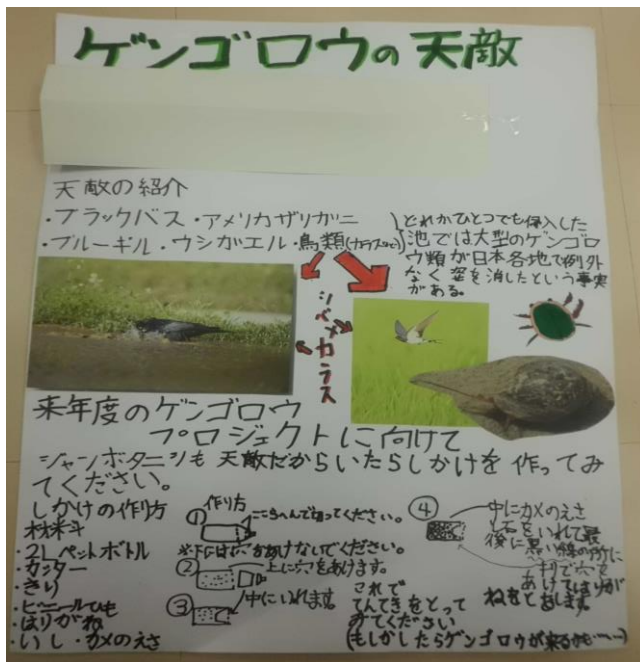 ゲンゴロウの天敵
天敵の紹介
・ブラックバス ・アメリカザリガニ
・ブルーギル ・ウシガエル ・鳥類(カラスなど)
どれかひとつでも侵入した
池では大型のゲンゴロ
ウ類が日本各地で例外
なく姿を消したという事実
がある。
ツバメ
カラス
来年度のゲンゴロウ
プロジェクトに向けて
ジャンボタニシも天敵だからいたらしかけを作ってみ
てください。
しかけの作り方
材料
・2Lペットボトル
・カッター
・きり
・ビニールひも
・はりがね
・いし ・カメのえさ
作り方
① ここらへんで切ってください。
※下にはあなをあけないでください。
② 上に穴をあけます。
③ 中にいれます。
④ 中にカメのえさ
と石をいれて最
後に黒い線の所に
きりで穴を
あけてはりが
ねをとおします。
これで
てんてきをとって
みてください
(もしかしたらゲンゴロウが来るかも……)